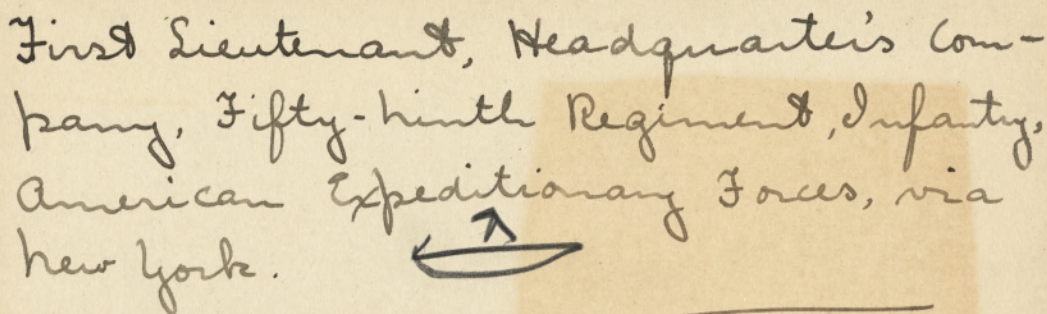 First Lieutenant, Headquarter's Com-
pany, Fifty-ninth Regiment, Infantry,
American Expeditionary Forces, via
New York.